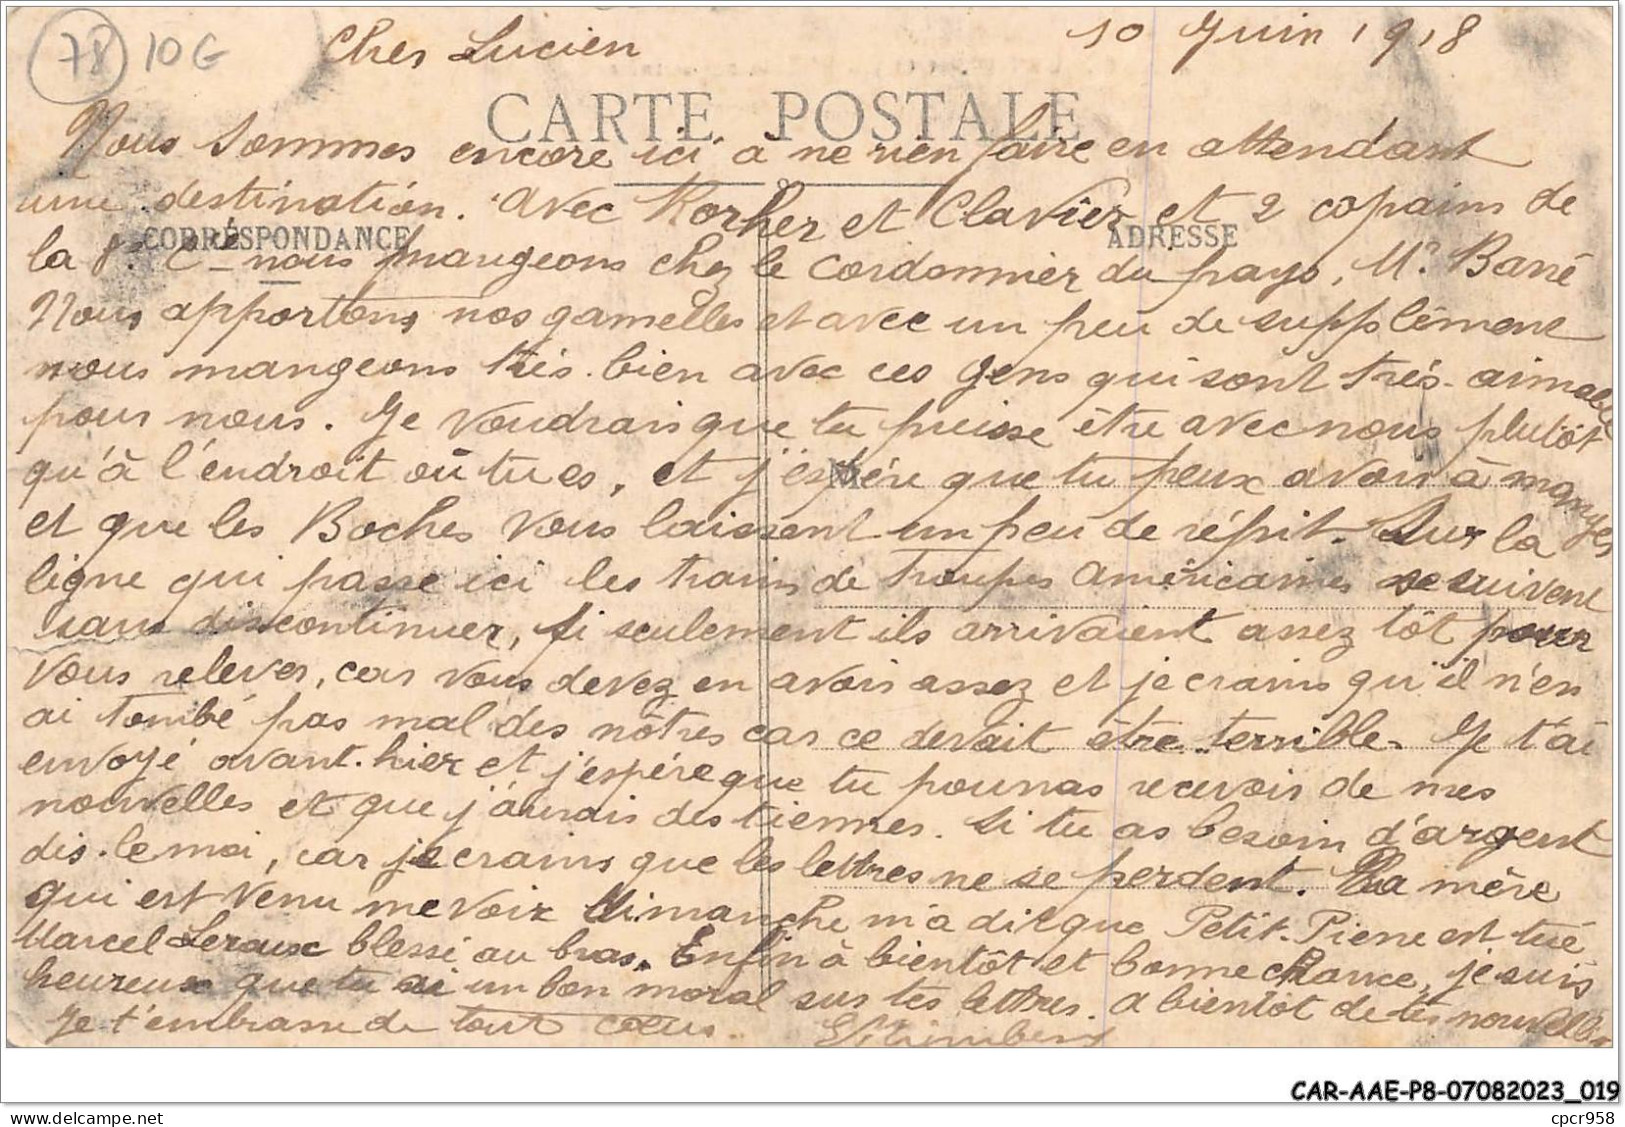 78 10G
Cher Lucien
10 Juin 1918
CARTE POSTALE
Nous sommes encore ici à ne rien faire en attendant
une destination. Avec Korher et Clavier et 2 copains de
CORRESPONDANCE
ADRESSE
la 8e Cie nous mangeons chez le Cordonnier du pays, Mr Barré
Nous apportons nos gamelles et avec un peu de supplément
nous mangeons très bien avec ces gens qui sont très-aimable
pour nous. Je voudrais que tu puisse être avec nous plutôt
qu'à l'endroit où tu es, et j'espére que tu peux avoir à manger
et que les Boches vous laissent un peu de répit. Sur la
ligne qui passe ici les trains de troupes américaines se suivent
sans discontinuer, si seulement ils arrivaient assez tôt pour
vous relever, car vous devez en avoir assez et je crains qu'il n'en
ai tombé pas mal des nôtres car ce devait être terrible. Je t'ai
envoyé avant-hier et j'espére que tu pourras recevoir de mes
nouvelles et que j'aurais des tiennes. Si tu as besoin d'argent
dis-le moi, car je crains que les lettres ne se perdent. Ma mère
qui est venu me voir dimanche m'a dit que Petit-Pierre est tué
Marcel Leroux blessé au bras. Enfin à bientôt et bonne chance, je suis
heureux que tu ai un bon moral sur tes lettres. A bientôt de tes nouvelles
Je t'embrasse de tout cœur.
CAR-AAE-P8-07082023_019
www.delcampe.net
cpcr958